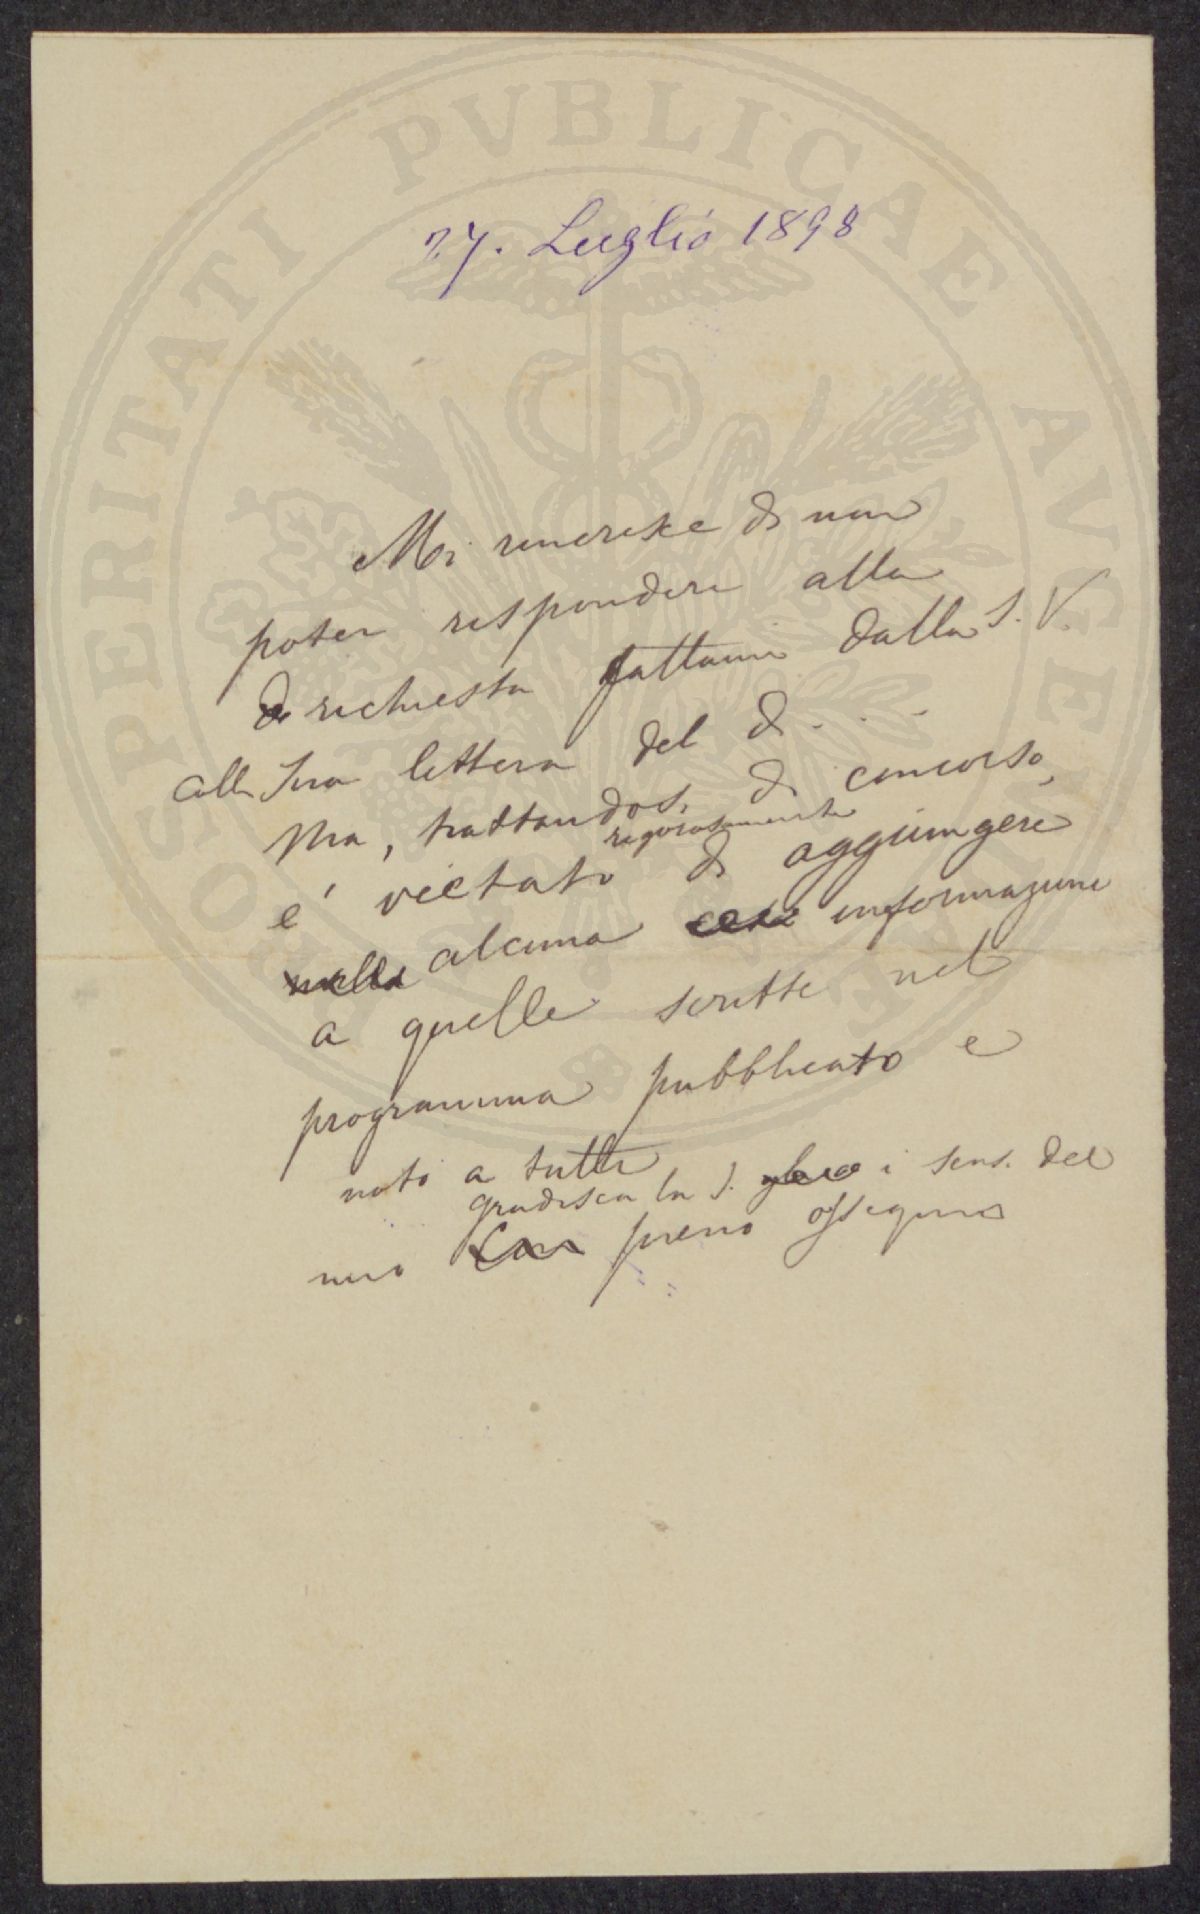 27. Luglio 1898
Mi rincresce di non
poter rispondere alla
richiesta fattami dalla S. V.
colla Sua lettera del dì . . .
Ma, trattandosi di concorso,
è vietato rigorosamente di aggiungere
nulla alcuna informazione
a quelle scritte nel
programma pubblicato e
noto a tutti
gradisca la S. i sensi del
mio Con pieno ossequio
PROSPERITATI PVBLICAE AVGENDAE